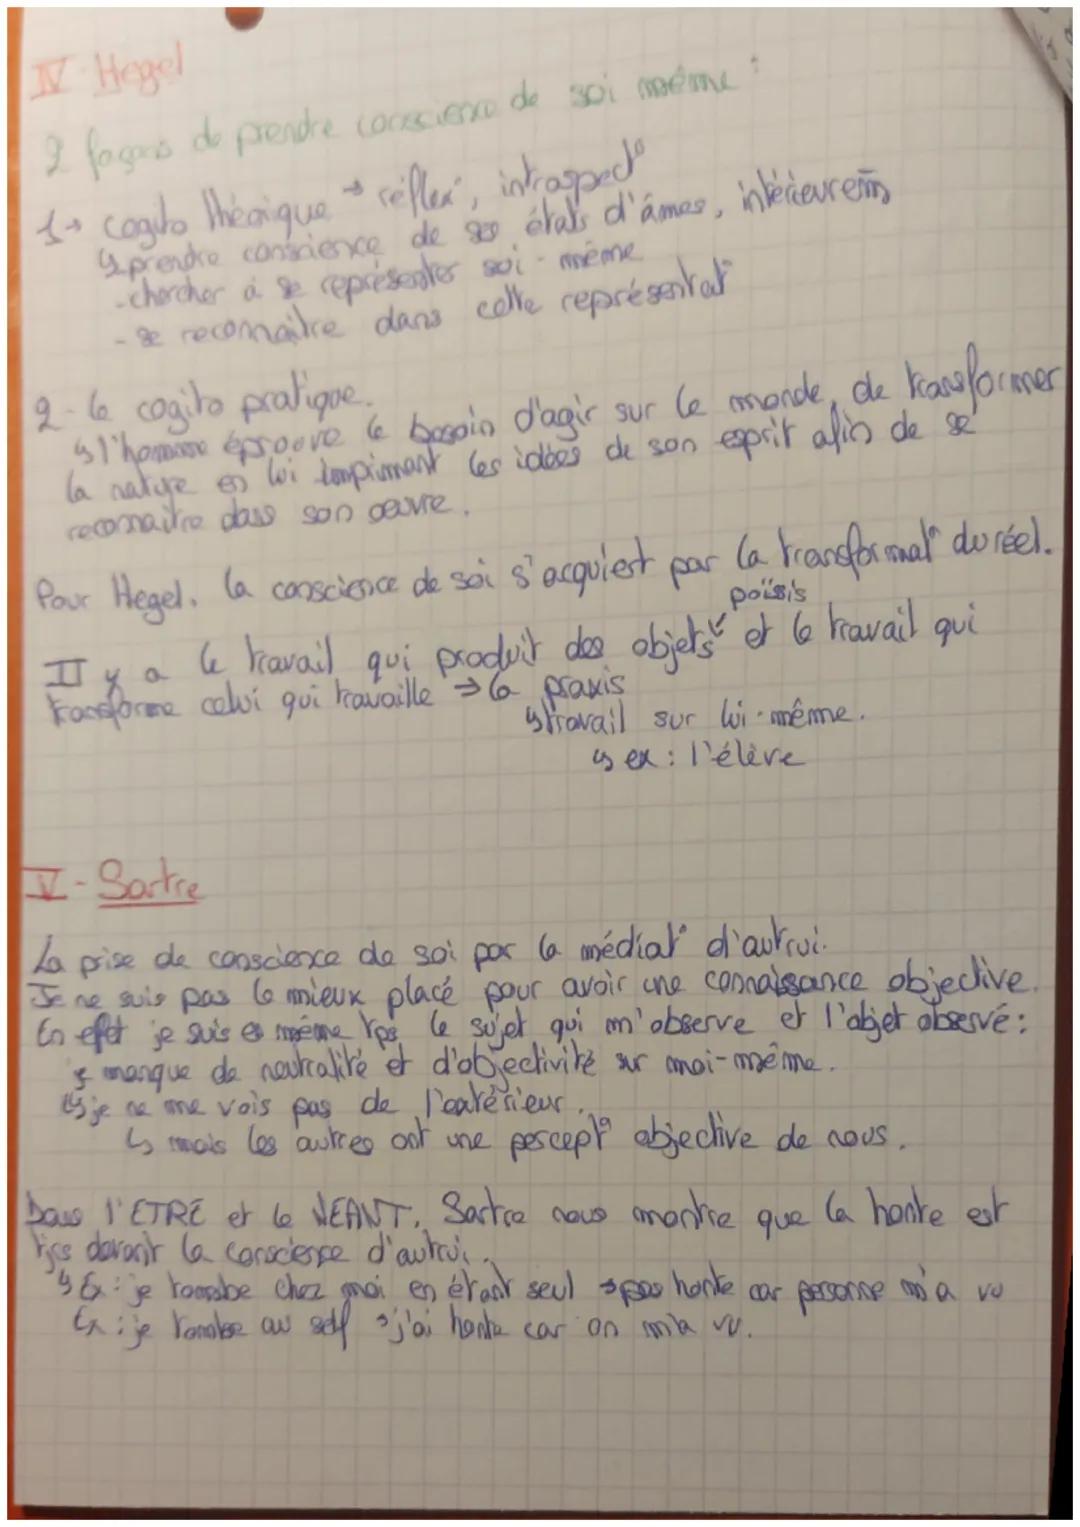 IV - Hegel
2 façons de prendre conscience de soi même :
1→ cogito théorique → réflex°, introspect°
↳ prendre conscience de ses états d'âmes, intérieurem
- chercher à se représenter soi-même
- se reconnaître dans cette représentat°
2 - le cogito pratique.
↳ l'homme éprouve le besoin d'agir sur le monde, de transformer
la nature en lui imprimant les idées de son esprit afin de se
reconnaitre dans son oeuvre.
Pour Hegel, la conscience de soi s'acquiest par la transformat° du réel.
poïisis
Il y a le travail qui produit des objets ↙ et le travail qui
transforme celui qui travaille → la praxis
↳ travail sur lui-même.
↳ ex : l'élève
V - Sartre
La prise de conscience de soi par la médiat° d'autrui.
Je ne suis pas le mieux placé pour avoir une connaissance objective.
En effet je suis en même tps le sujet qui m'observe et l'objet observé :
↳ manque de neutralité et d'objectivité sur moi-même.
↳ je ne me vois pas de l'extérieur.
↳ mais les autres ont une percept° objective de nous.
Dans l'ETRE et le NEANT, Sartre nous montre que la honte est
tjrs devant la conscience d'autrui.
↳ Ex : je tombe chez moi en étant seul → pas honte car personne m'a vu
Ex : je tombe au self → j'ai honte car on m'a vu.